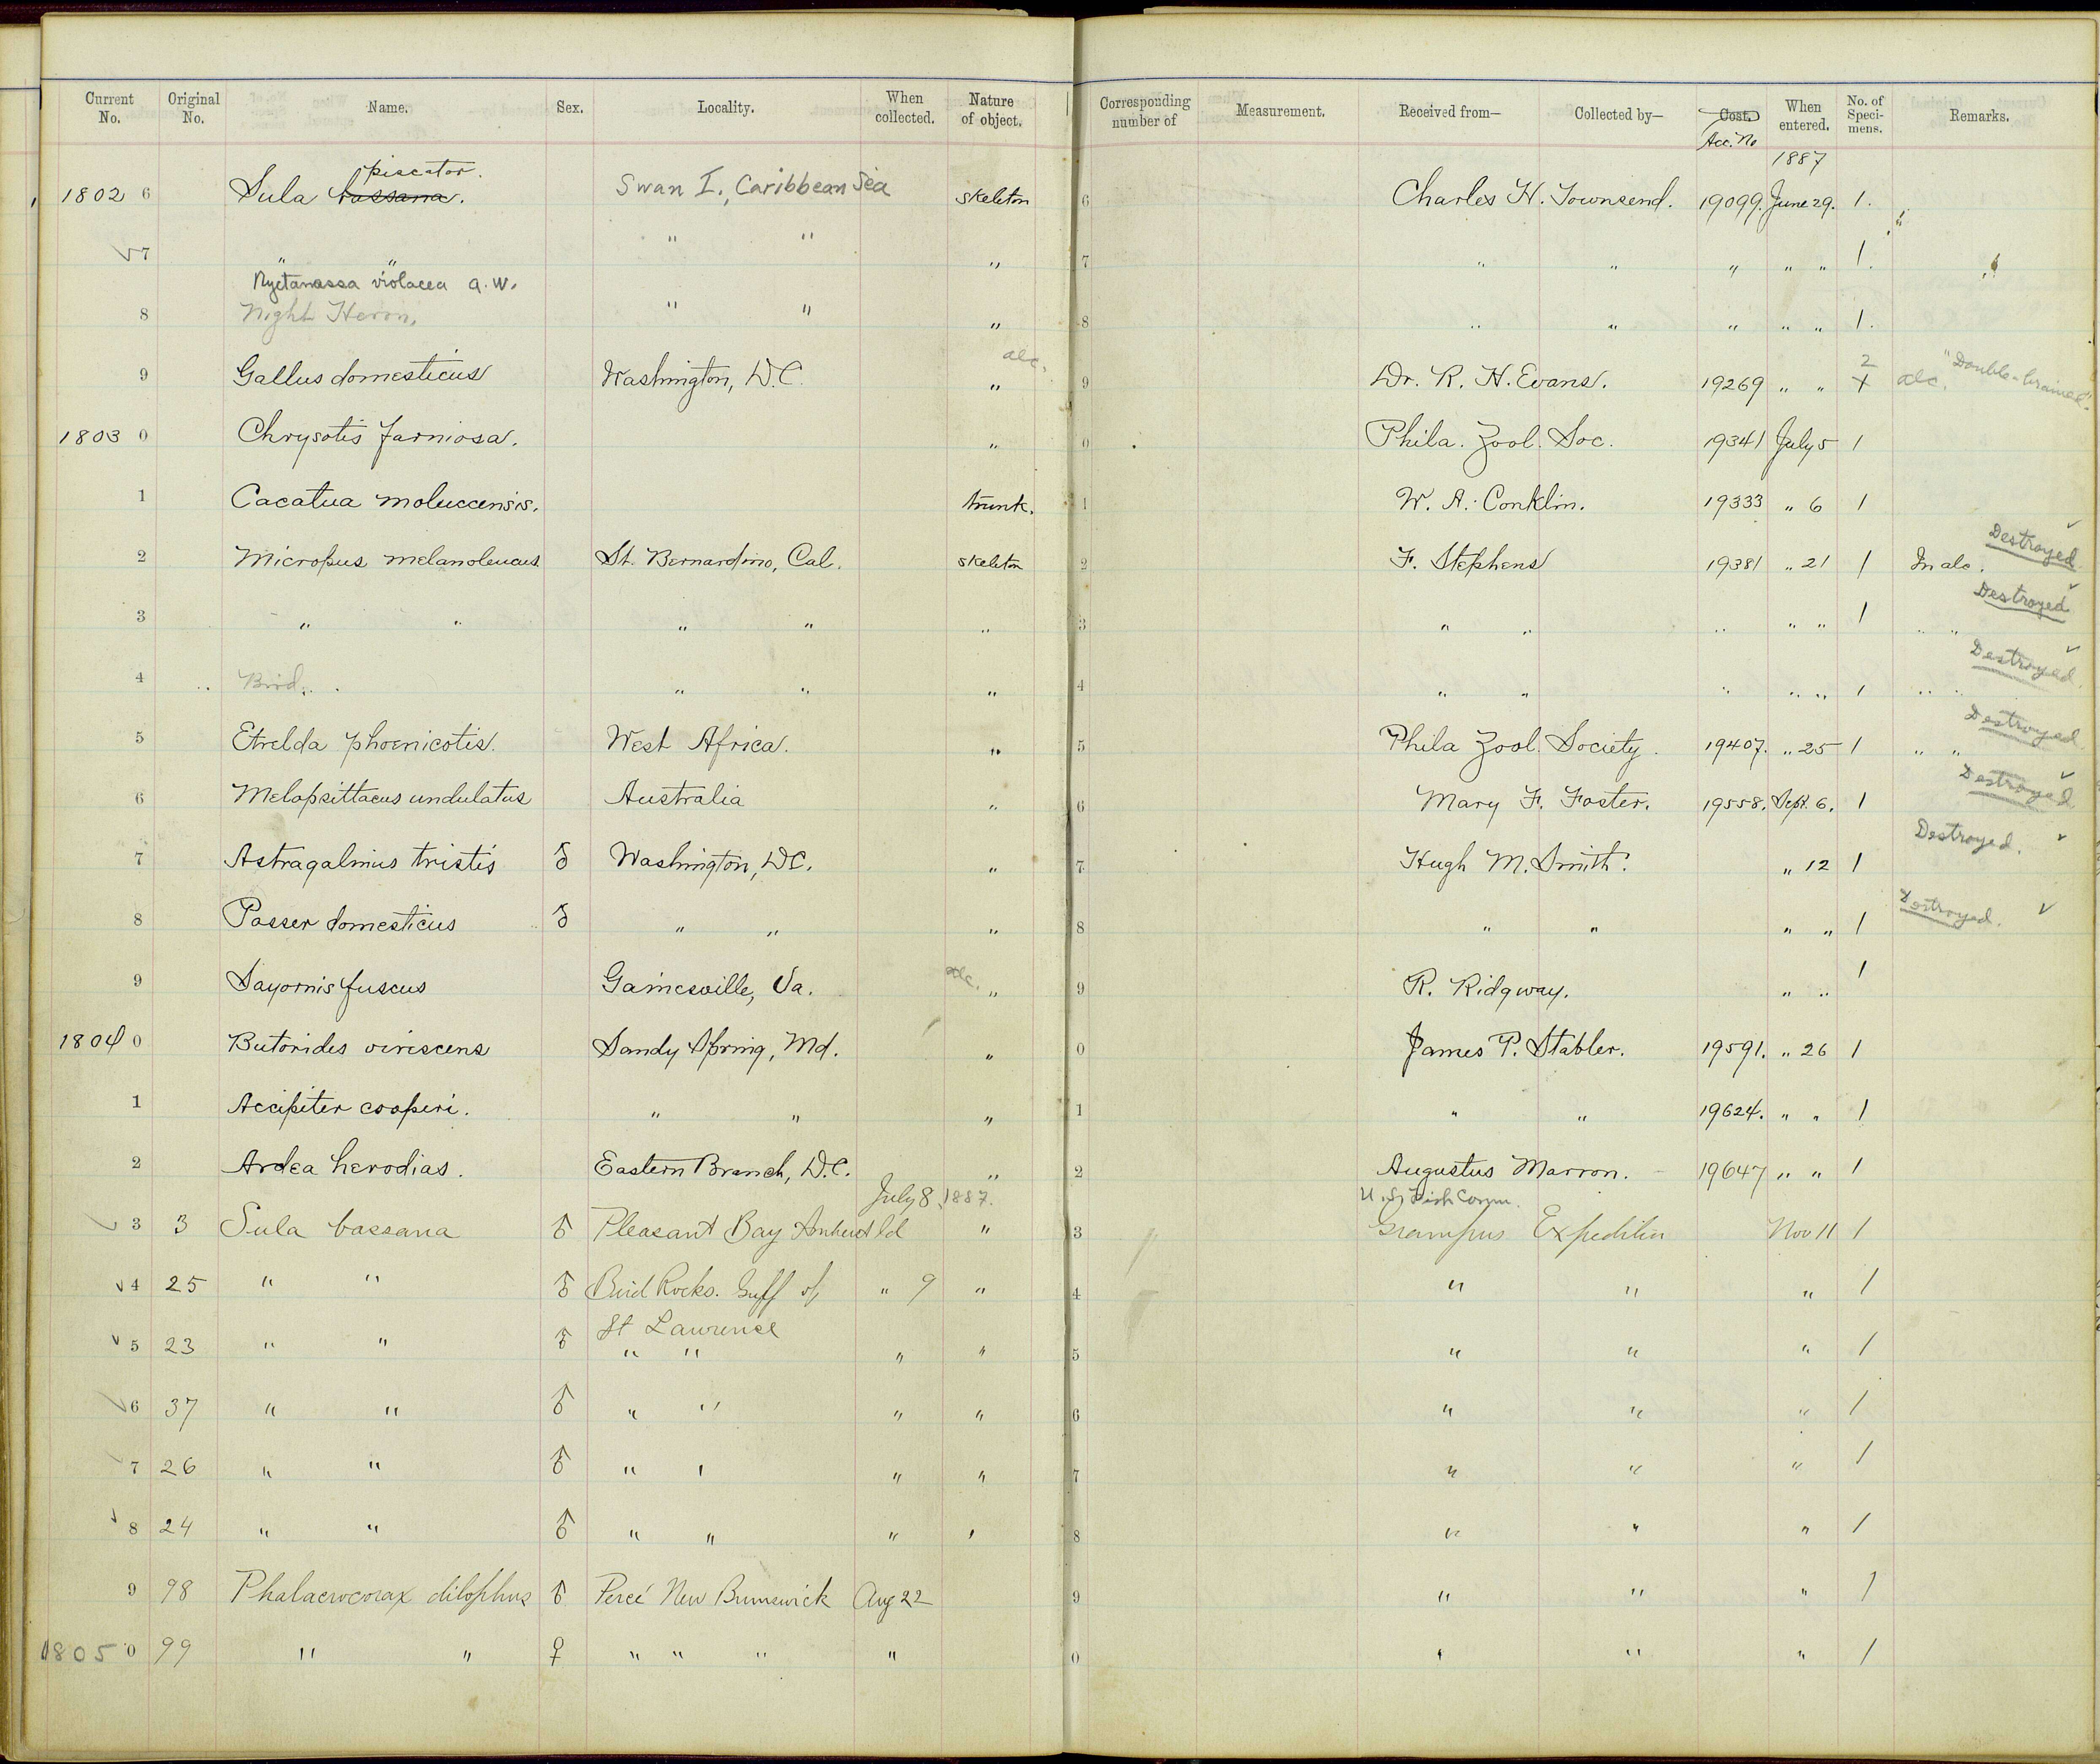 Current No. Original No. Name. Sex. Locality. When collected. Nature of object. Corresponding number of Measurement. Received from— Collected by— Cost. Acc. No When entered. No. of Specimens. Remarks.
piscator. 1887
1802 6 Sula bassana. Swan I., Caribbean Sea skeleton 6 Charles H. Townsend. 19099. June 29. 1.
7 " " " " " 7 " " " " " 1.
Nyctanassa violacea a.w.
8 Night Heron, " " " 8 " " " " " 1.
9 Gallus domesticus Washington, D.C. " alc. 9 Dr. R. H. Evans. 19269 " " 2 1 alc. "Double-brained".
1803 0 Chrysotis farniosa. " 0 Phila. Zool. Soc. 19341 July 5 1
1 Cacatua moluccensis. trunk. 1 W. A. Conklin. 19333 " 6 1
2 Micropus melanoleucus St. Bernardino, Cal. skeleton 2 F. Stephens 19381 " 21 1 In alc. Destroyed
3 " " " " " 3 " " " " " 1 " " Destroyed
4 " Bird. " " " 4 " " " " " 1 " " Destroyed
5 Etrelda phoenicotis. West Africa. " 5 Phila Zool. Society. 19407. " 25 1 " " Destroyed
6 Melopsittacus undulatus Australia " 6 Mary F. Foster. 19558. Sept. 6. 1 Destroyed
7 Astragalinus tristis ♂ Washington, DC. " 7 Hugh M. Smith. " 12 1 Destroyed.
8 Passer domesticus ♂ " " " 8 " " " " 1 Destroyed.
9 Sayornis fuscus Gainesville, Va. alc. " 9 R. Ridgway. " " 1
1804 0 Butorides virescens Sandy Spring, Md. " 0 James P. Stabler. 19591. " 26 1
1 Accipiter cooperi. " " " 1 " " 19624. " " 1
2 Ardea herodias. Eastern Branch, D.C. " 2 Augustus Marron. 19647 " " 1
July 8, 1887. U.S. Fish Comm.
3 3 Sula bassana ♂ Pleasant Bay Amherst Id " 3 Grampus Expedition Nov 11 1
4 25 " " ♂ Bird Rocks. Gulf of " 9 " 4 " " " 1
St Lawrence
5 23 " " ♂ " " " " 5 " " " 1
6 37 " " ♂ " " " " 6 " " " 1
7 26 " " ♂ " " " " 7 " " " 1
8 24 " " ♂ " " " " 8 " " " 1
9 98 Phalacrocorax dilophus ♂ Percé New Brunswick Aug 22 9 " " " 1
1805 0 99 " " ♀ " " " " 0 " " " 1